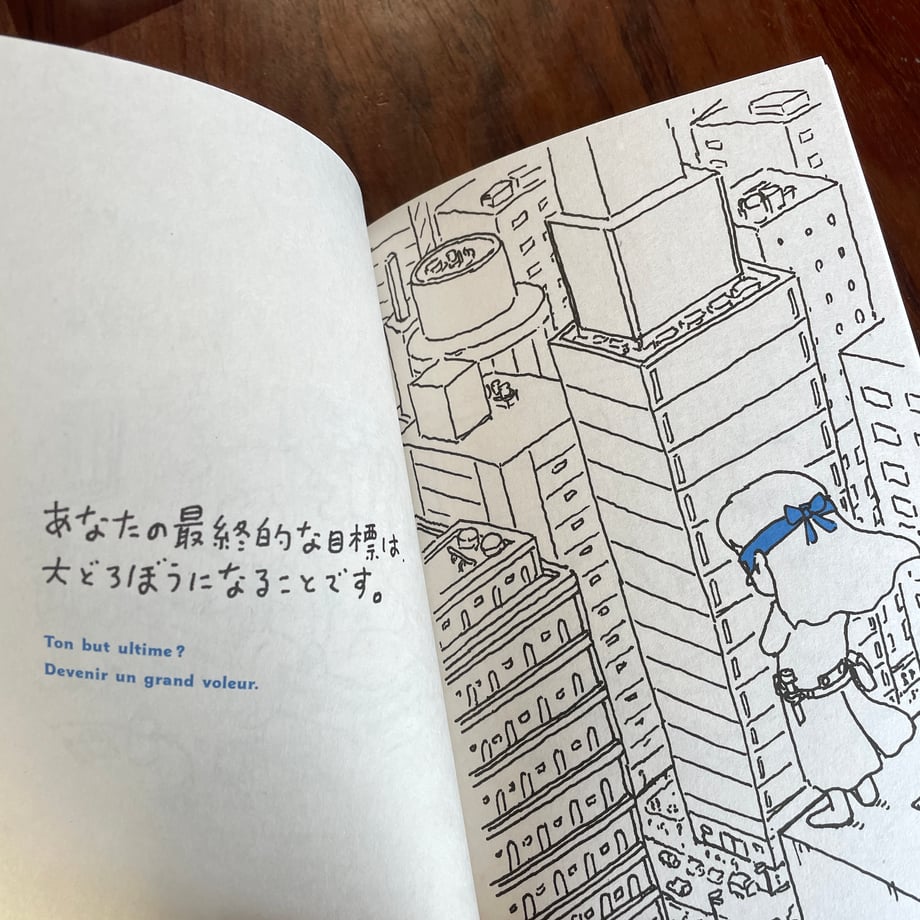 あなたの最終的な目標は、
大どろぼうになることです。
Ton but ultime ?
Devenir un grand voleur.